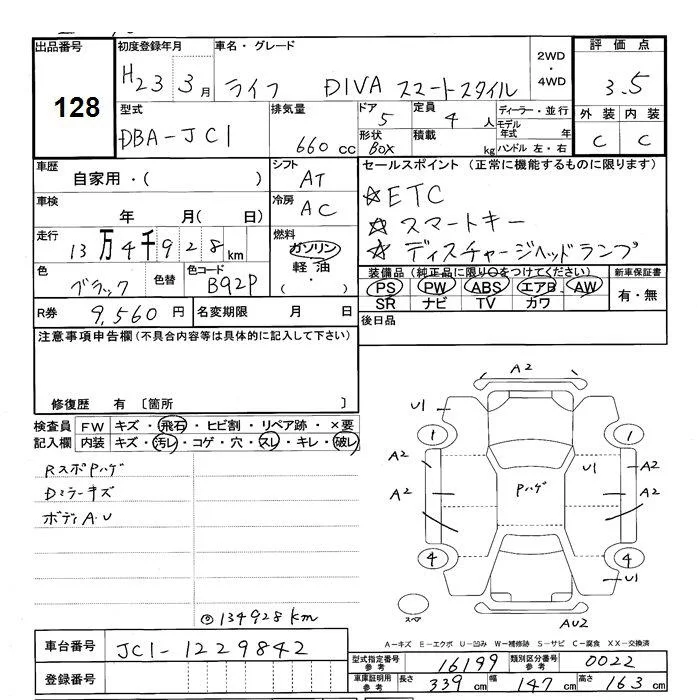 出品番号 128
初度登録年月 H23 3月
車名・グレード ライフ DIVA スマートスタイル
2WD・4WD
評価点 3.5
外装 C 内装 C
型式 DBA-JC1
排気量 660cc
ドア 5
定員 4人
形状 BOX
積載 kg
ディーラー・並行
モデル年式 年
ハンドル 左・右
車歴 自家用・( )
シフト AT
車検 年 月( 日)
冷房 AC
走行 13万4千928km
燃料 ガソリン 軽油 ・
色 ブラック 色替 色コード B92P
R券 9,560円 名変期限 月 日
セールスポイント(正常に機能するものに限ります)
☆ETC
☆スマートキー
☆ディスチャージヘッドランプ
装備品(純正品に限り○をつけてください) 新車保証書
PS PW ABS エアB AW 有・無
SR ナビ TV カワ
後日品
注意事項申告欄(不具合内容等は具体的に記入して下さい)
修復歴 有 〔箇所 〕
検査員記入欄
FW キズ・飛石・ヒビ割・リペア跡・×要
内装 キズ・汚レ・コゲ・穴・スレ・キレ・破レ
RスポPハゲ
Dミラーキズ
ボディA.U
◎134928km
A2
U1
1 1
A2 U1 A2
A2 Pハゲ A2
4 4
U1
スペア
AU2
A-キズ E-エクボ U-凹み W-補修跡 S-サビ C-腐食 XX-交換済
車台番号 JC1-1229842
登録番号
型式指定番号 参考 16199 類別区分番号 参考 0022
車庫証明用 参考 長さ 339cm 幅 147cm 高さ 163cm